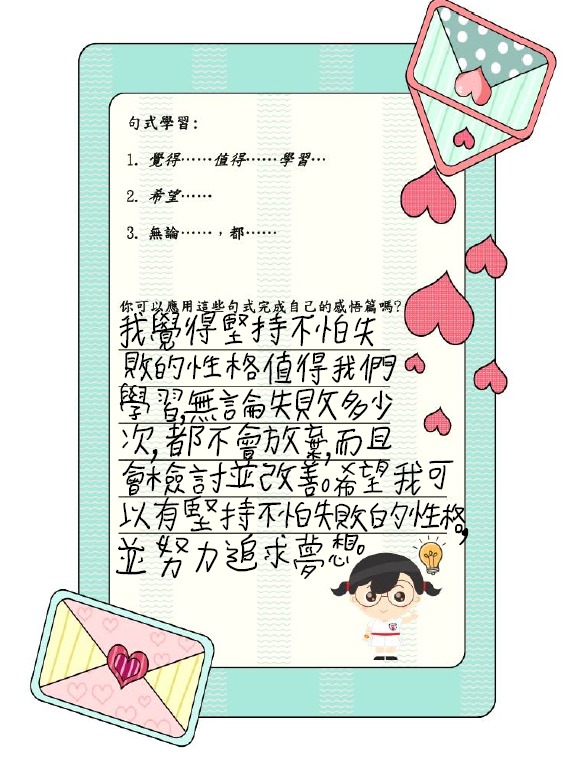 句式學習：
1. 覺得……值得……學習…
2. 希望……
3. 無論……，都……
你可以應用這些句式完成自己的感悟篇嗎?
我覺得堅持不怕失
敗的性格值得我們
學習,無論失敗多少
次,都不會放棄,而且
會檢討並改善。希望我可
以有堅持不怕失敗的性格,
並努力追求夢想。